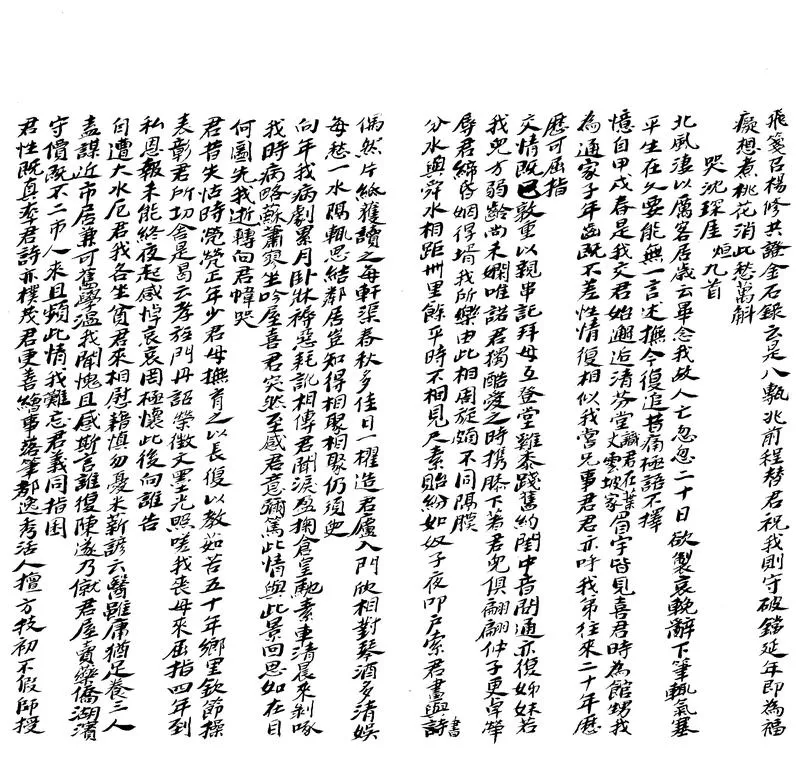 飛箋召楊修共證金石錄云是八甎兆前程替君祝我則守破鐺延年即為福
癡想煮桃花消此愁萬斛
哭沈琛厓 烜九首
北風淒以厲客居歲云畢念我故人亡忽忽二十日欲製哀輓辭下筆輒氣塞
平生在久要能無一言述撫今復追昔痛極語不擇
憶自甲戌春是我交君始邂逅清芬堂眉宇皆見喜君時為館甥我
為通家子年齒既不差性情復相似我嘗兄事君君亦呼我弟往來二十年歷
歷可屈指
交情既已敦重以親串記拜母互登堂雖忝踐舊約閨中音問通亦復姊妹若
我兒方弱齡尚未嫻唯諾君獨酷愛之時携膝下著君兒俱翩翩仲子更卓犖
辱君締昏姻得壻我所樂由此相周旋頗不同隔膜
分水與舜水相距卅里餘平時不相見尺素貽紛如奴子夜叩戶索君畫與詩書
偶然片紙獲讀之每軒渠春秋多佳日一櫂造君廬入門欣相對琴酒多清娛
每愁一水隔輒思結鄰居豈知得相聚相聚仍須臾
向年我病劇累月卧牀褥惡耗訛相傳君聞淚盈掬倉皇馳素車清晨來剝啄
我時病略蘇蕭寥坐吟屋喜君突然至感君意彌篤此情與此景回思如在目
何圖先我逝轉向君幃哭
君昔失怙時煢煢正年少君母撫育之以長復以教茹苦五十年鄉里欽節操
表彰君所切舍是曷云孝旌門丹詔榮徵文墨光照嗟我喪母來屈指四年到
私恩報未能終夜起感悼哀哀罔極懷此後向誰告
自遭大水厄君我各坐貧君來相慰藉慎勿憂米薪諺云醫雖庸猶足養三人
盍謀近市居兼可舊學溫我聞愧且感斯言誰復陳遂乃僦君屋賣藥僑湖濱
守價既不二市人求且頻此情我難忘君義同指囷
君性既真率君詩亦樸茂君更善繪事落筆都逸秀活人擅方技初不假師授